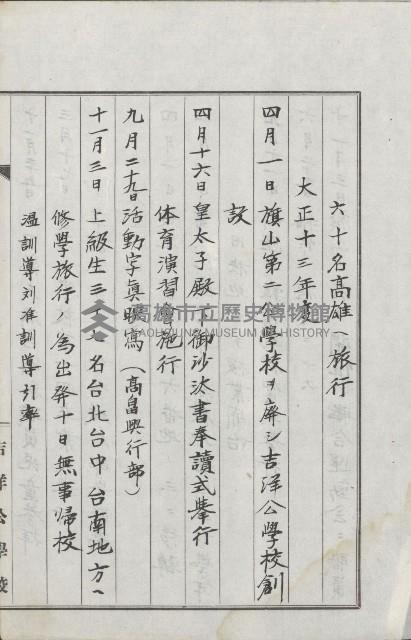 六十名高雄ヘ旅行
大正十三年度
四月一日旗山第二公學校ヲ廃シ吉洋公學校創
設
四月十六日皇太子殿下御沙汰書奉讀式舉行
体育演習會施行
九月二十九日活動字真映寫(高畠興行部)
十一月三日上級生三十名台北台中台南地方ヘ
修學旅行ノ為出発十日無事帰校
温訓導刘准訓導引率
吉洋公學校
高雄市立歷史博物館
KAOHSIUNG MUSEUM OF HISTORY